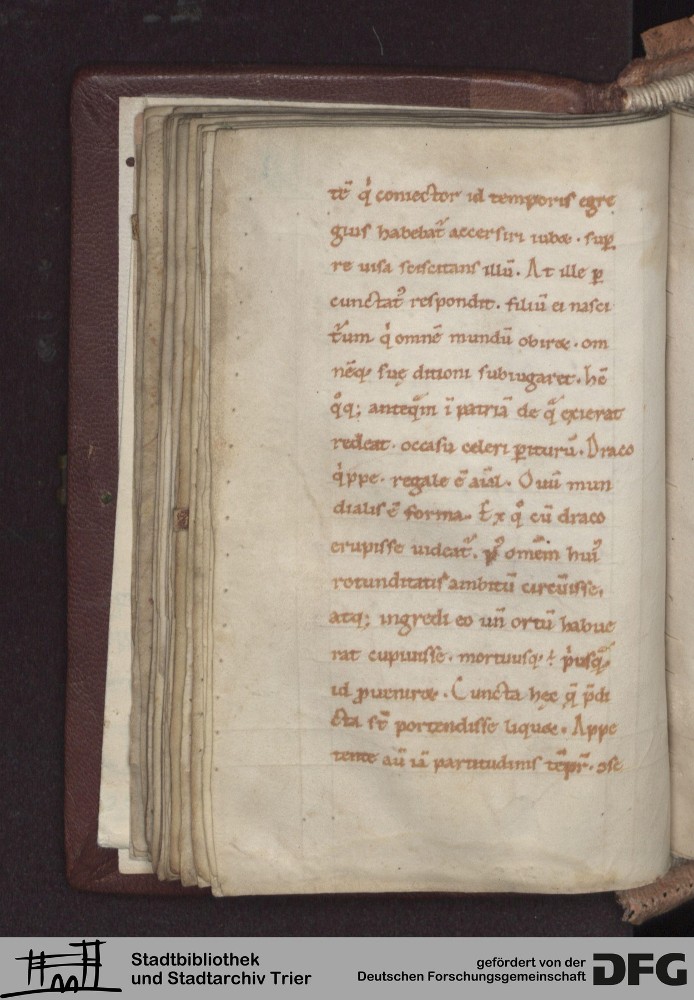 tē q͛ coniector id temporis egre
gius habebat͛ accersiri iubet · sup̱
re uisa sciscitans illū · At ille p̱
cunctat᷒ respondit · filiū ei nasci
t͛um q͛ omnē mundū obiret · om
nēq; suę ditioni subiugaret · hē
q̊q; anteq̄m ī patriā de q̄ exierat
redeat · occasu celeri p̱iturū · Draco
q͛ppe · regale ē aīal · Ouū mun
dialis ē forma · Ex q̊ cū draco
erupisse uideat͛ · omēm hui᷒
rotunditatis ambitū circūisse,
atq; ingredi eo uñ ortū habue
rat cupiuisse · mortuusq; ÷ p͛usq̄
id ꝓueniret · Cuncta hec q̄ p̄di
cta st̄ portendisse liquet · Appe
tente aū iā partitudinis tēpr̄ · ɔsc
Stadtbibliothek
und Stadtarchiv Trier
gefördert von der
Deutschen Forschungsgemeinschaft
DFG